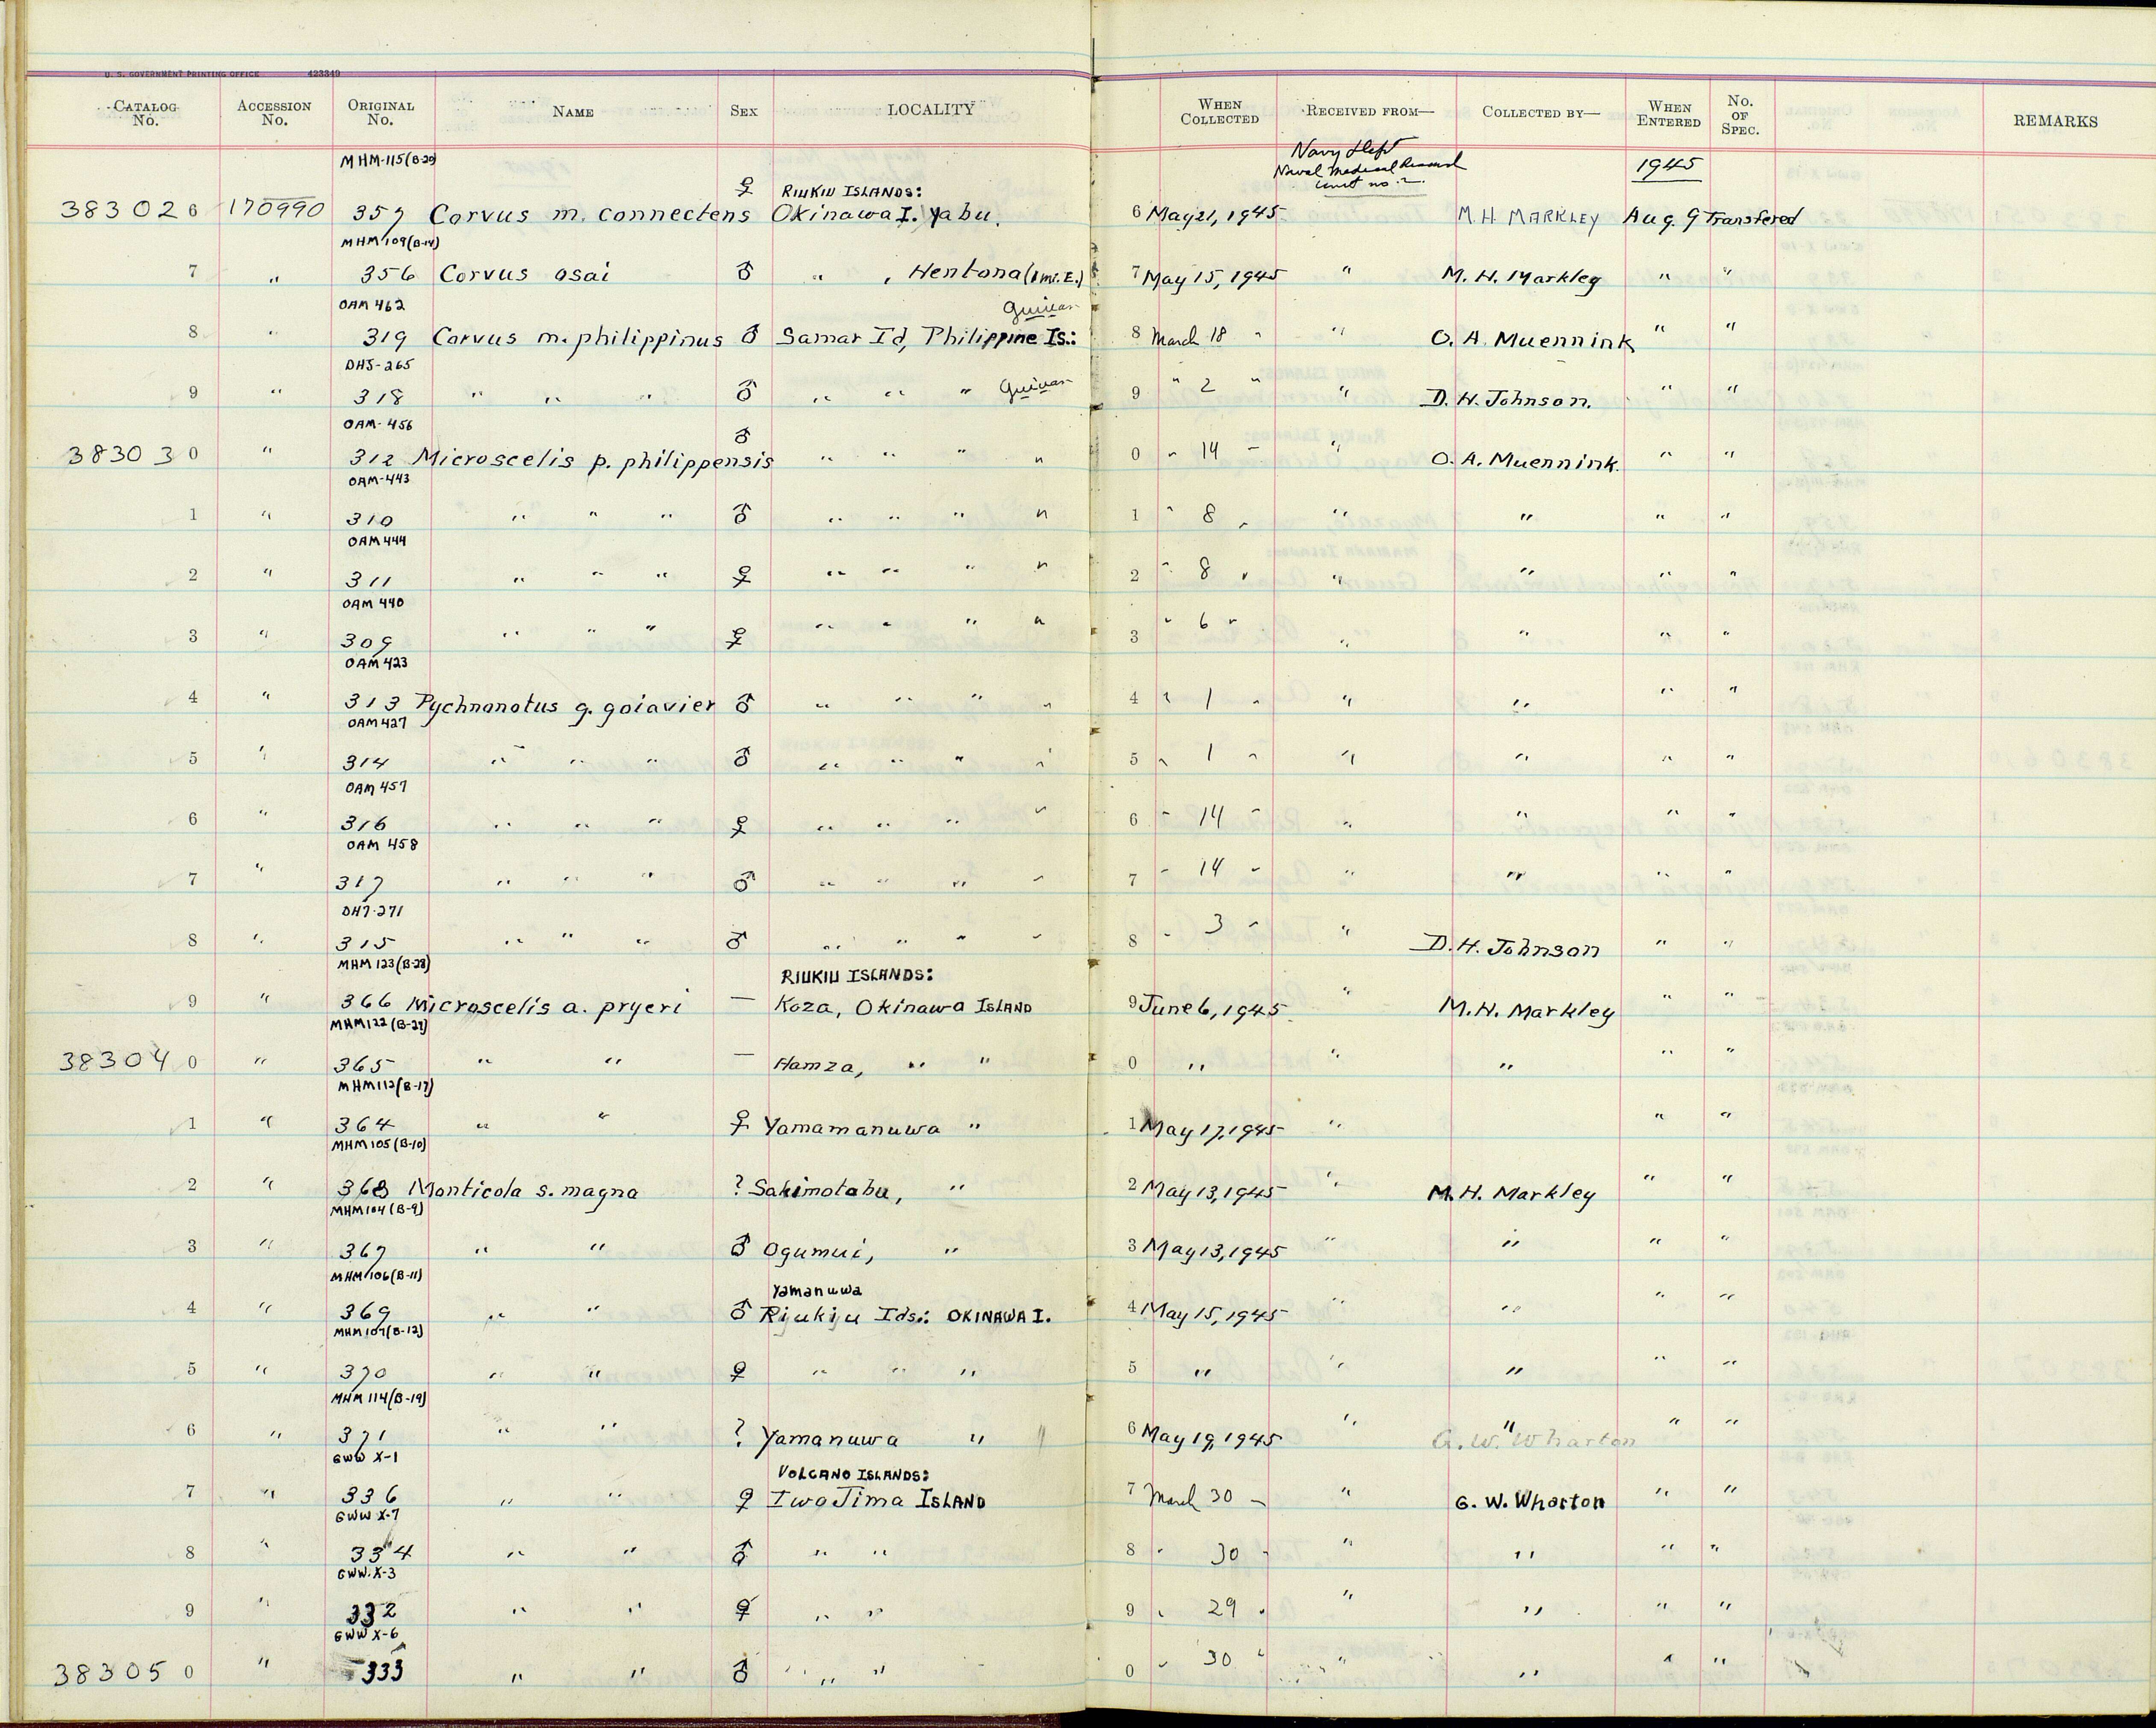 U. S. GOVERNMENT PRINTING OFFICE 423349
CATALOG No. ACCESSION No. ORIGINAL No. NAME SEX LOCALITY WHEN COLLECTED RECEIVED FROM— COLLECTED BY— WHEN ENTERED No. OF SPEC. REMARKS
MHM-115(B-20) Navy Dept
Naval Medical Research 1945
♀ RIUKIU ISLANDS: Unit no. 2
383026 170990 357 Corvus m. connectens Okinawa I. Yabu. 6 May 21, 1945 M. H. MARKLEY Aug. 9 Transfered
MHM 109(B-14)
7 " 356 Corvus osai ♂ " , Hentona (1 mi. E.) 7 May 15, 1945 " M. H. Markley " "
OAM 462 Guiuan
8 " 319 Corvus m. philippinus ♂ Samar Id, Philippine Is.: 8 March 18 " " O. A. Muennink " "
DHJ-265
9 " 318 " " " ♂ " " " Guiuan 9 " 2 " " D. H. Johnson. " "
OAM-456
383030 " 312 Microscelis p. philippensis ♂ " " " " 0 " 14 " " O. A. Muennink. " "
OAM-443
1 " 310 " " " ♂ " " " " 1 " 8 " " " " "
OAM 444
2 " 311 " " " ♀ " " " " 2 " 8 " " " " "
OAM 440
3 " 309 " " " ♀ " " " " 3 " 6 " " " " "
OAM 423
4 " 313 Pychnonotus g. goiavier ♂ " " " " 4 " 1 " " " " "
OAM 427
5 " 314 " " " ♂ " " " " 5 " 1 " " " " "
OAM 457
6 " 316 " " " ♀ " " " " 6 " 14 " " " " "
OAM 458
7 " 317 " " " ♂ " " " " 7 " 14 " " " " "
DHJ-271
8 " 315 " " " ♂ " " " " 8 " 3 " " D. H. Johnson " "
MHM 123(B-28) RIUKIU ISLANDS:
9 " 366 Microscelis a. pryeri — Koza, Okinawa ISLAND 9 June 6, 1945 " M. H. Markley " "
MHM 122(B-27)
383040 " 365 " " — Hamza, " " 0 " " " " "
MHM 112(B-17)
1 " 364 " " ♀ Yamamanuwa " 1 May 17, 1945 " " "
MHM 105(B-10)
2 " 368 Monticola s. magna ? Sakimotobu, " 2 May 13, 1945 " M. H. Markley " "
MHM 104(B-9)
3 " 367 " " ♂ Ogumui, " 3 May 13, 1945 " " " "
MHM 106(B-11) Yamanuwa
4 " 369 " " ♂ Rijukiju Ids.: OKINAWA I. 4 May 15, 1945 " " " "
MHM 107(B-12)
5 " 370 " " ♀ " " " 5 " " " " "
MHM 114(B-19)
6 " 371 " " ? Yamanuwa " " 6 May 19, 1945 " G. W. Wharton " " "
GWW X-1 VOLCANO ISLANDS:
7 " 336 " " ♀ Iwo Jima ISLAND 7 March 30 " " G. W. Wharton " "
GWW X-7
8 " 334 " " ♂ " " 8 " 30 " " " " "
GWW-X-3
9 " 332 " " ♀ " " 9 " 29 " " " " "
GWW X-6
383050 " 333 " " ♂ " " " 0 " 30 " " " " "